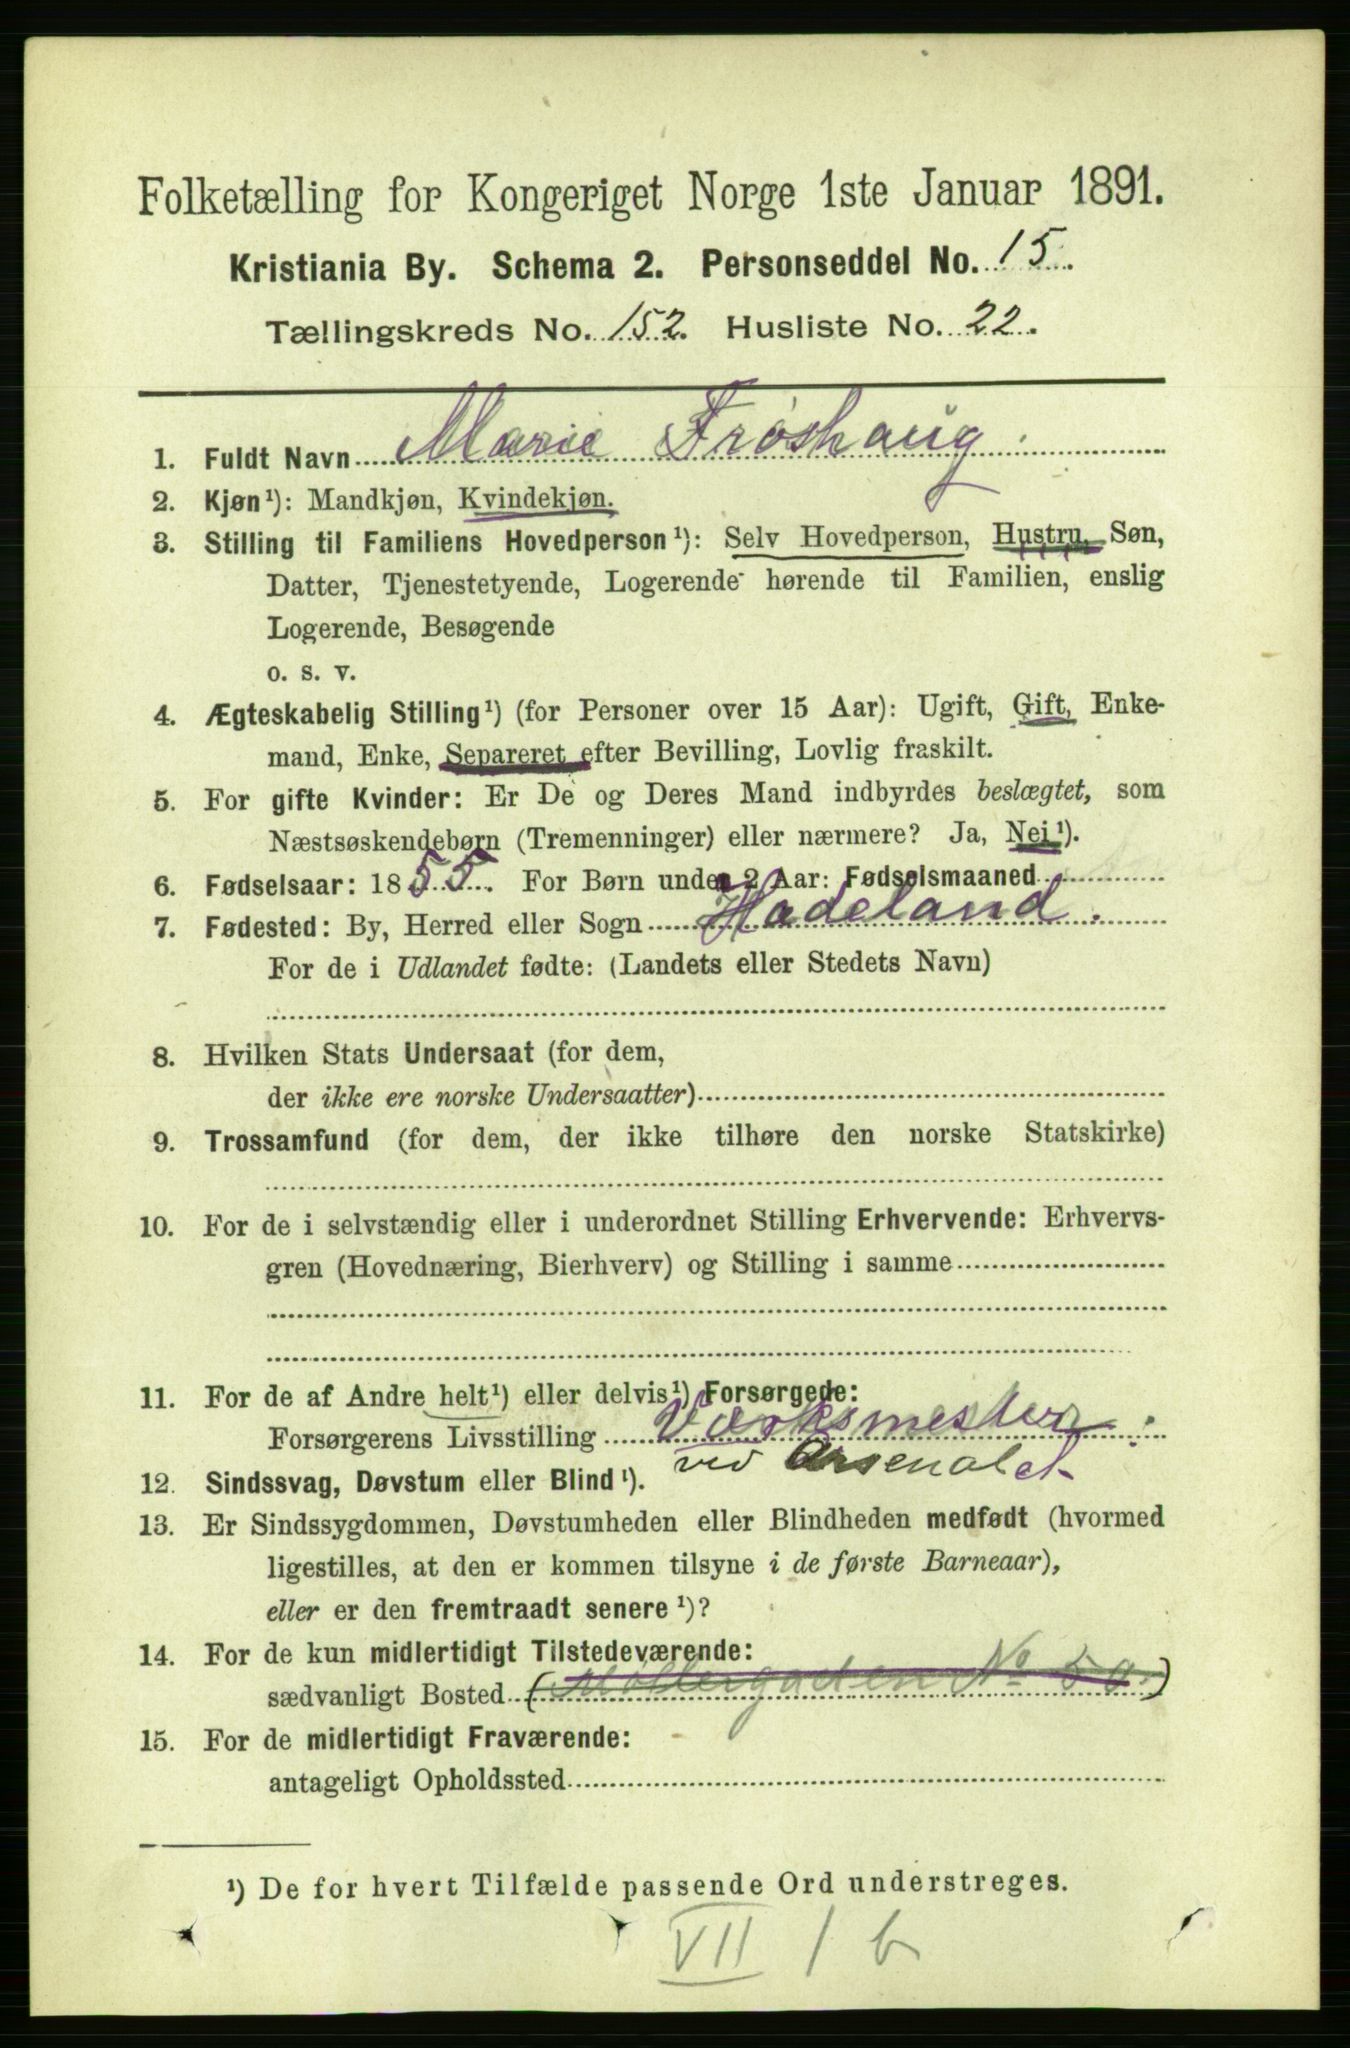 Folketælling for Kongeriget Norge 1ste Januar 1891.
Kristiania By. Schema 2. Personseddel No. 15.
Tællingskreds No. 152. Husliste No. 22.
1. Fuldt Navn Marie Frøshaug.
2. Kjøn¹): Mandkjøn, Kvindekjøn.
3. Stilling til Familiens Hovedperson¹): Selv Hovedperson, Hustru, Søn,
Datter, Tjenestetyende, Logerende hørende til Familien, enslig
Logerende, Besøgende
o. s. v.
4. Ægteskabelig Stilling¹) (for Personer over 15 Aar): Ugift, Gift, Enke-
mand, Enke, Separeret efter Bevilling, Lovlig fraskilt.
5. For gifte Kvinder: Er De og Deres Mand indbyrdes beslægtet, som
Næstsøskendebørn (Tremenninger) eller nærmere? Ja, Nei¹).
6. Fødselsaar: 1855. For Børn under 2 Aar: Fødselsmaaned
7. Fødested: By, Herred eller Sogn Hadeland.
For de i Udlandet fødte: (Landets eller Stedets Navn)
8. Hvilken Stats Undersaat (for dem,
der ikke ere norske Undersaatter)
9. Trossamfund (for dem, der ikke tilhøre den norske Statskirke)
10. For de i selvstændig eller i underordnet Stilling Erhvervende: Erhvervs-
gren (Hovednæring, Bierhverv) og Stilling i samme
11. For de af Andre helt¹) eller delvis¹) Forsørgede:
Forsørgerens Livsstilling Værksmester
ved Arsenalet
12. Sindssvag, Døvstum eller Blind¹).
13. Er Sindssygdommen, Døvstumheden eller Blindheden medfødt (hvormed
ligestilles, at den er kommen tilsyne i de første Barneaar),
eller er den fremtraadt senere¹)?
14. For de kun midlertidigt Tilstedeværende:
sædvanligt Bosted (Møllergaden No 50.)
15. For de midlertidigt Fraværende:
antageligt Opholdssted
¹) De for hvert Tilfælde passende Ord understreges.
VII 1 b